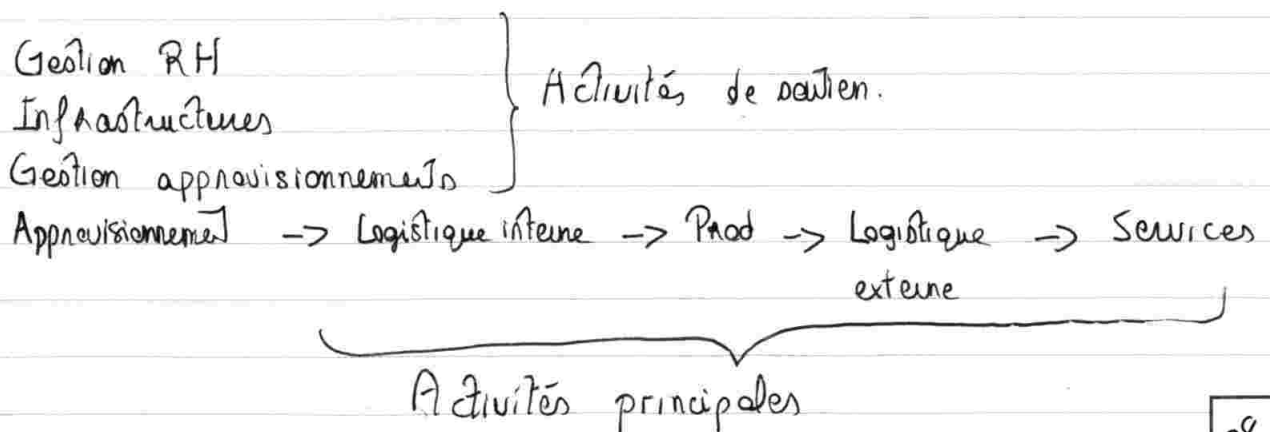 Gestion RH
Infrastructures
Gestion approvisionnements
Activités de soutien.
Approvisionnement -> Logistique interne -> Prod -> Logistique externe -> Services
Activités principales